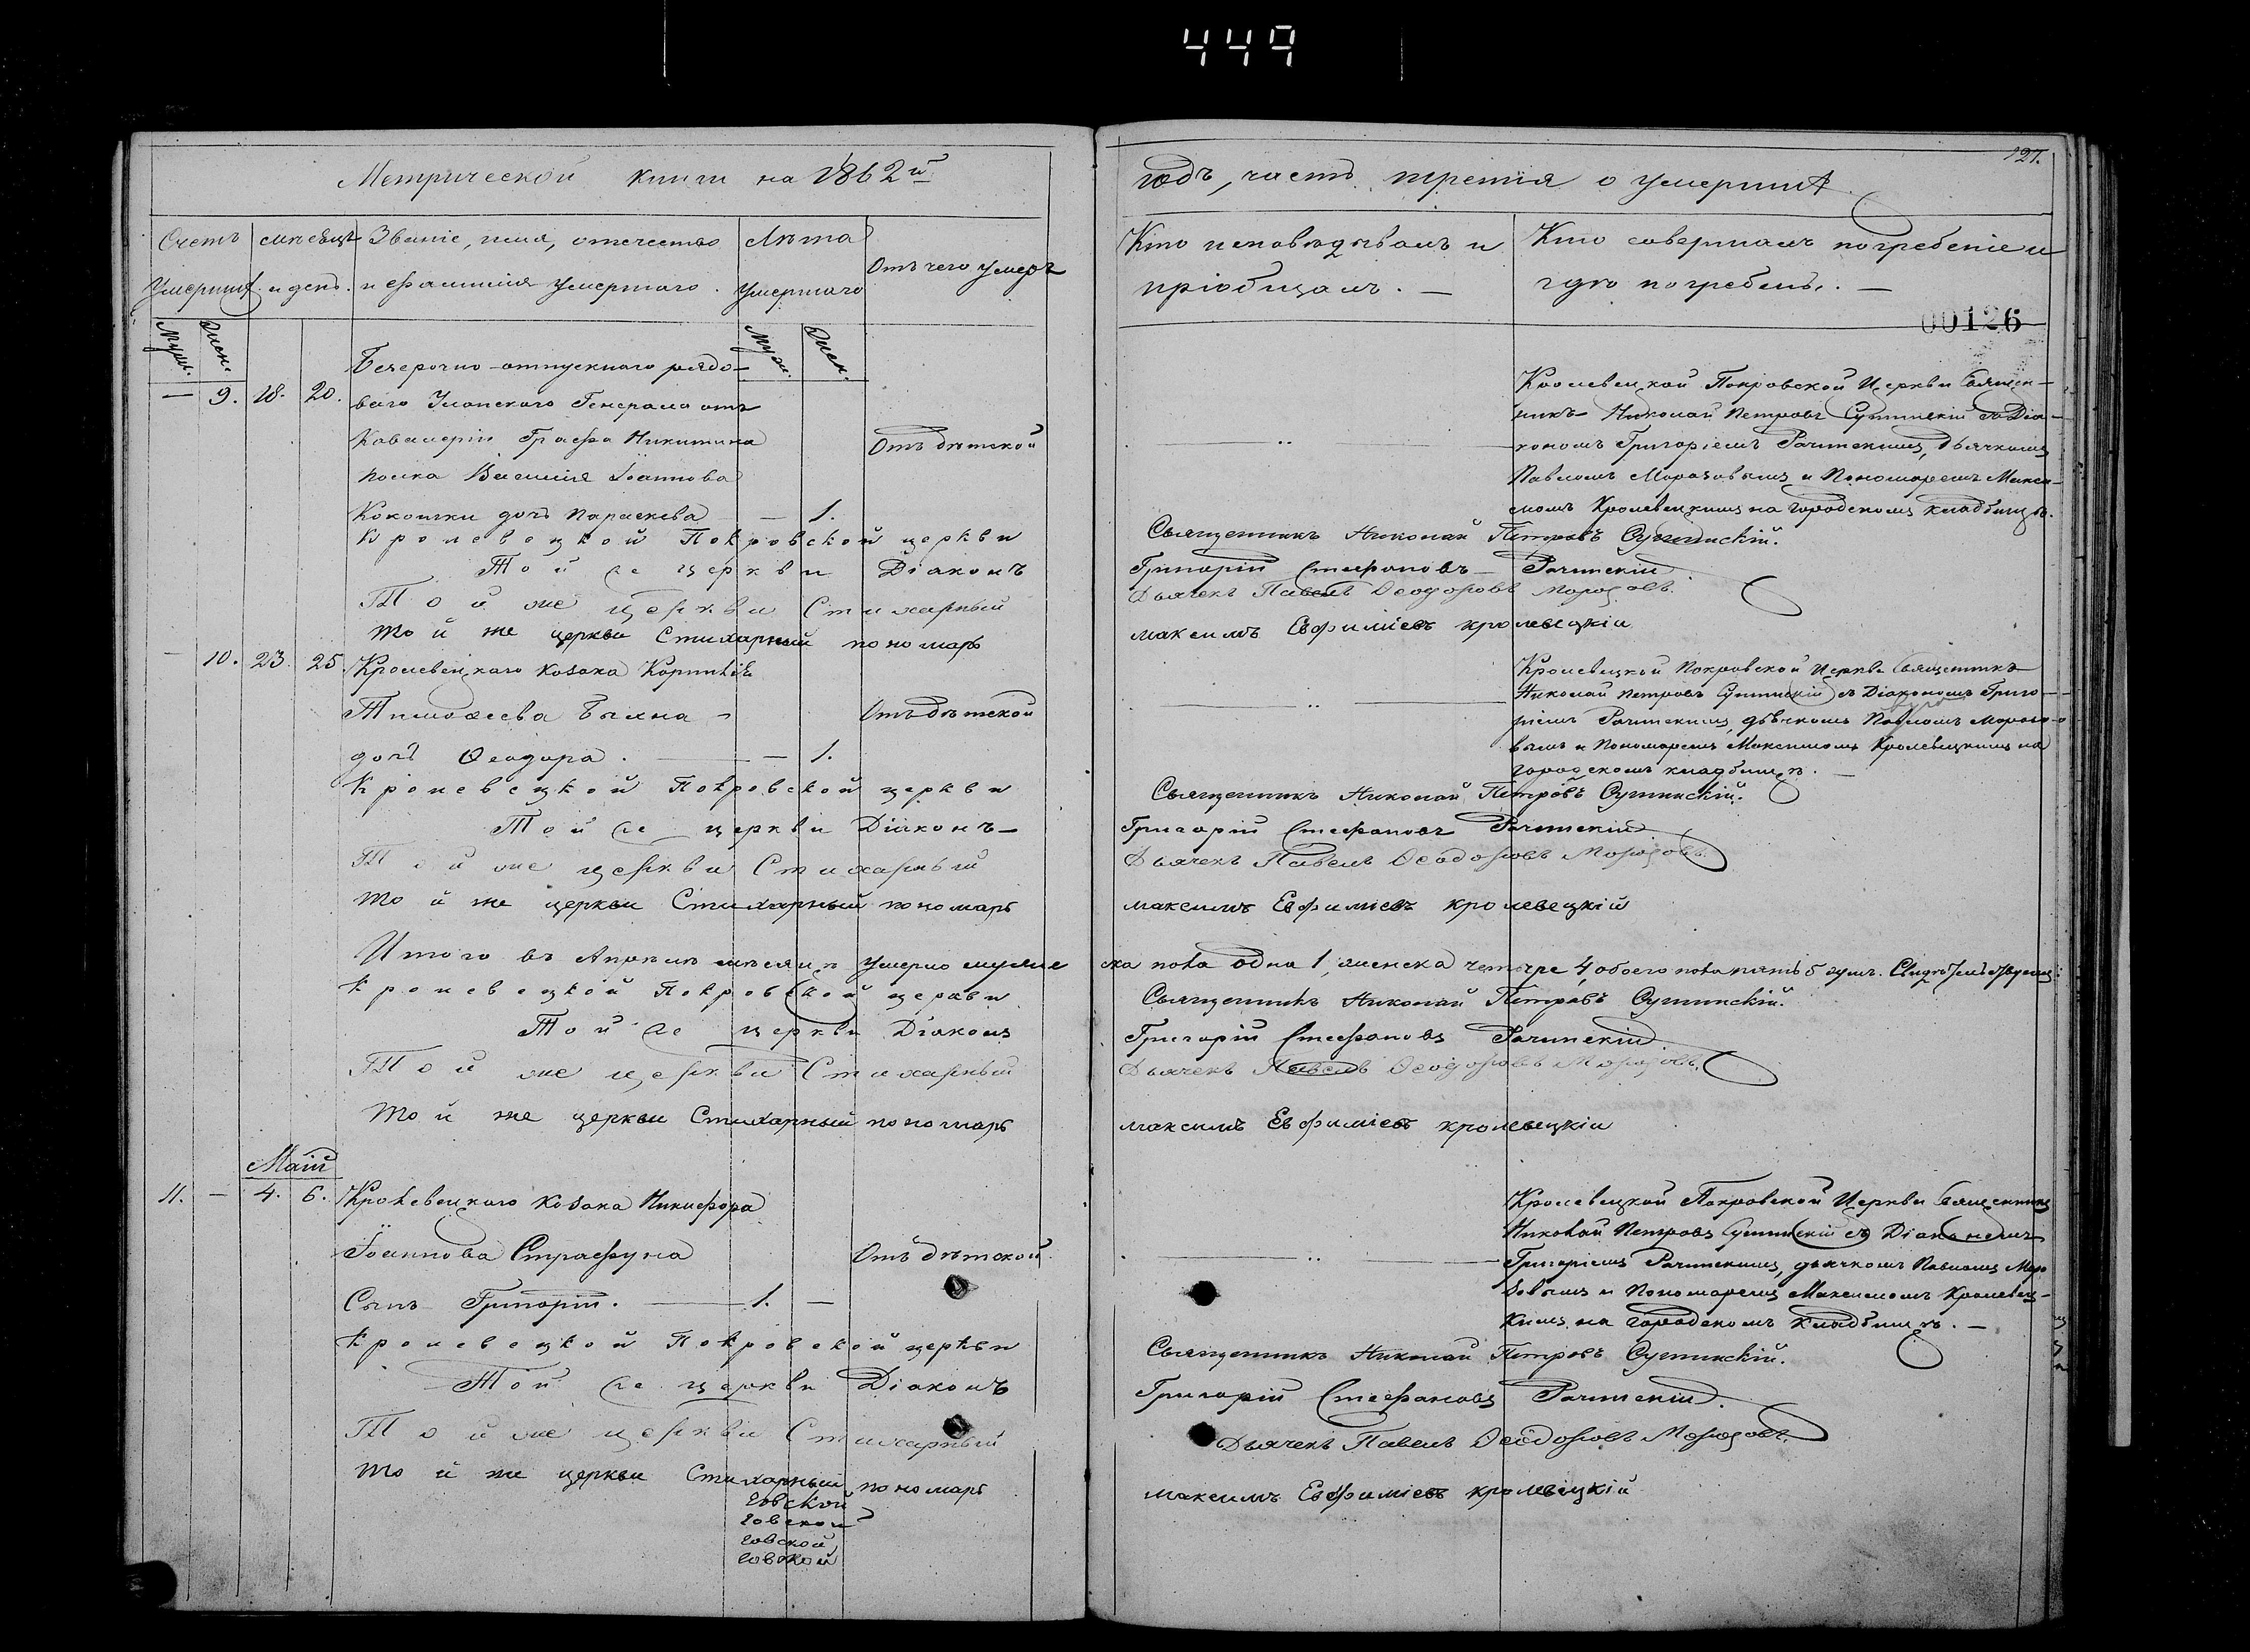 449
Метрической книги на 1862й
Счетъ
Умершихъ.
мѣсяцъ
и день.
Званіе, имя, отечество
и фамилія умершаго.
Лѣта
умершаго
Отъ чего умеръ
Муж.
Жен.
Муж.
Жен.
— 9. 18. 20.
Безсрочно-отпускнаго рядо-
ваго Уланскаго Генерала отъ
Кавалеріи Графа Никитина
полка Василія Іоаннова
Кокошки дочь Параскева — 1.
Отъ дѣтской
Кролевецкой Покровской церкви
Той же церкви Діаконъ
Той же церкви Стихарный
той же церкви Стихарный пономарь
— 10. 23. 25.
Кролевецкаго козака Корнилія
Тимофеева Быхна
дочь Феодора. — 1.
Отъ дѣтской
Кролевецкой Покровской церкви
Той же церкви Діаконъ
Той же церкви Стихарный
той же церкви Стихарный пономарь
Итого въ Апрѣлѣ мѣсяцѣ умерло мужес
Кролевецкой Покровской церкви
Той же церкви Діаконъ
Той же церкви Стихарный
той же церкви Стихарный пономарь
Маій
11. — 4. 6.
Кролевецкаго козака Никифора
Іоаннова Страфуна
Сынъ Григорій. 1. —
Отъ дѣтской
Кролевецкой Покровской церкви
Той же церкви Діаконъ
Той же церкви Стихарный
той же церкви Стихарный пономарь
говской
говской
говской
говской
127.
годъ, часть третія о умершихъ
Кто исповѣдывалъ и
пріобщалъ. —
Кто совершалъ погребеніе и
гдѣ погребены. —
00126
Кролевецкой Покровской Церкви Священ-
никъ Николай Петровъ съ Діа-
кономъ Григоріемъ Рачинскимъ, дьячкомъ
Павломъ Морозовымъ и Пономаремъ Макси-
момъ Кролевецкимъ на городскомъ кладбищѣ.
Священникъ Николай Петровъ
Григорій Стефановъ Рачинскій
Дьячекъ Павелъ Феодоровъ Морозовъ.
максимъ Евфиміевъ кролевецкій
Кролевецкой Покровской Церкви Священникъ
Николай Петровъ съ Діакономъ Григо-
ріемъ Рачинскимъ, дьячкомъ Павломъ Морозо-
вымъ и Пономаремъ Максимомъ Кролевецкимъ на
городскомъ кладбищѣ. —
Священникъ Николай Петровъ
Григорій Стефановъ Рачинскій
Дьячекъ Павелъ Феодоровъ Морозовъ.
максимъ Евфиміевъ кролевецкій
ка пола одна 1, женска четыре 4, обоего пола пять 5 душъ.
Священникъ Николай Петровъ
Григорій Стефановъ Рачинскій
Дьячекъ Павелъ Феодоровъ Морозовъ.
максимъ Евфиміевъ кролевецкій
Кролевецкой Покровской Церкви Священникъ
Николай Петровъ съ Діакономъ
Григоріемъ Рачинскимъ, дьячкомъ Павломъ Моро
зовымъ и Пономаремъ Максимомъ Кролевец-
кимъ на городскомъ кладбищѣ. —
Священникъ Николай Петровъ
Григорій Стефановъ Рачинскій.
Дьячекъ Павелъ Феодоровъ Морозовъ.
максимъ Евфиміевъ кролевецкій